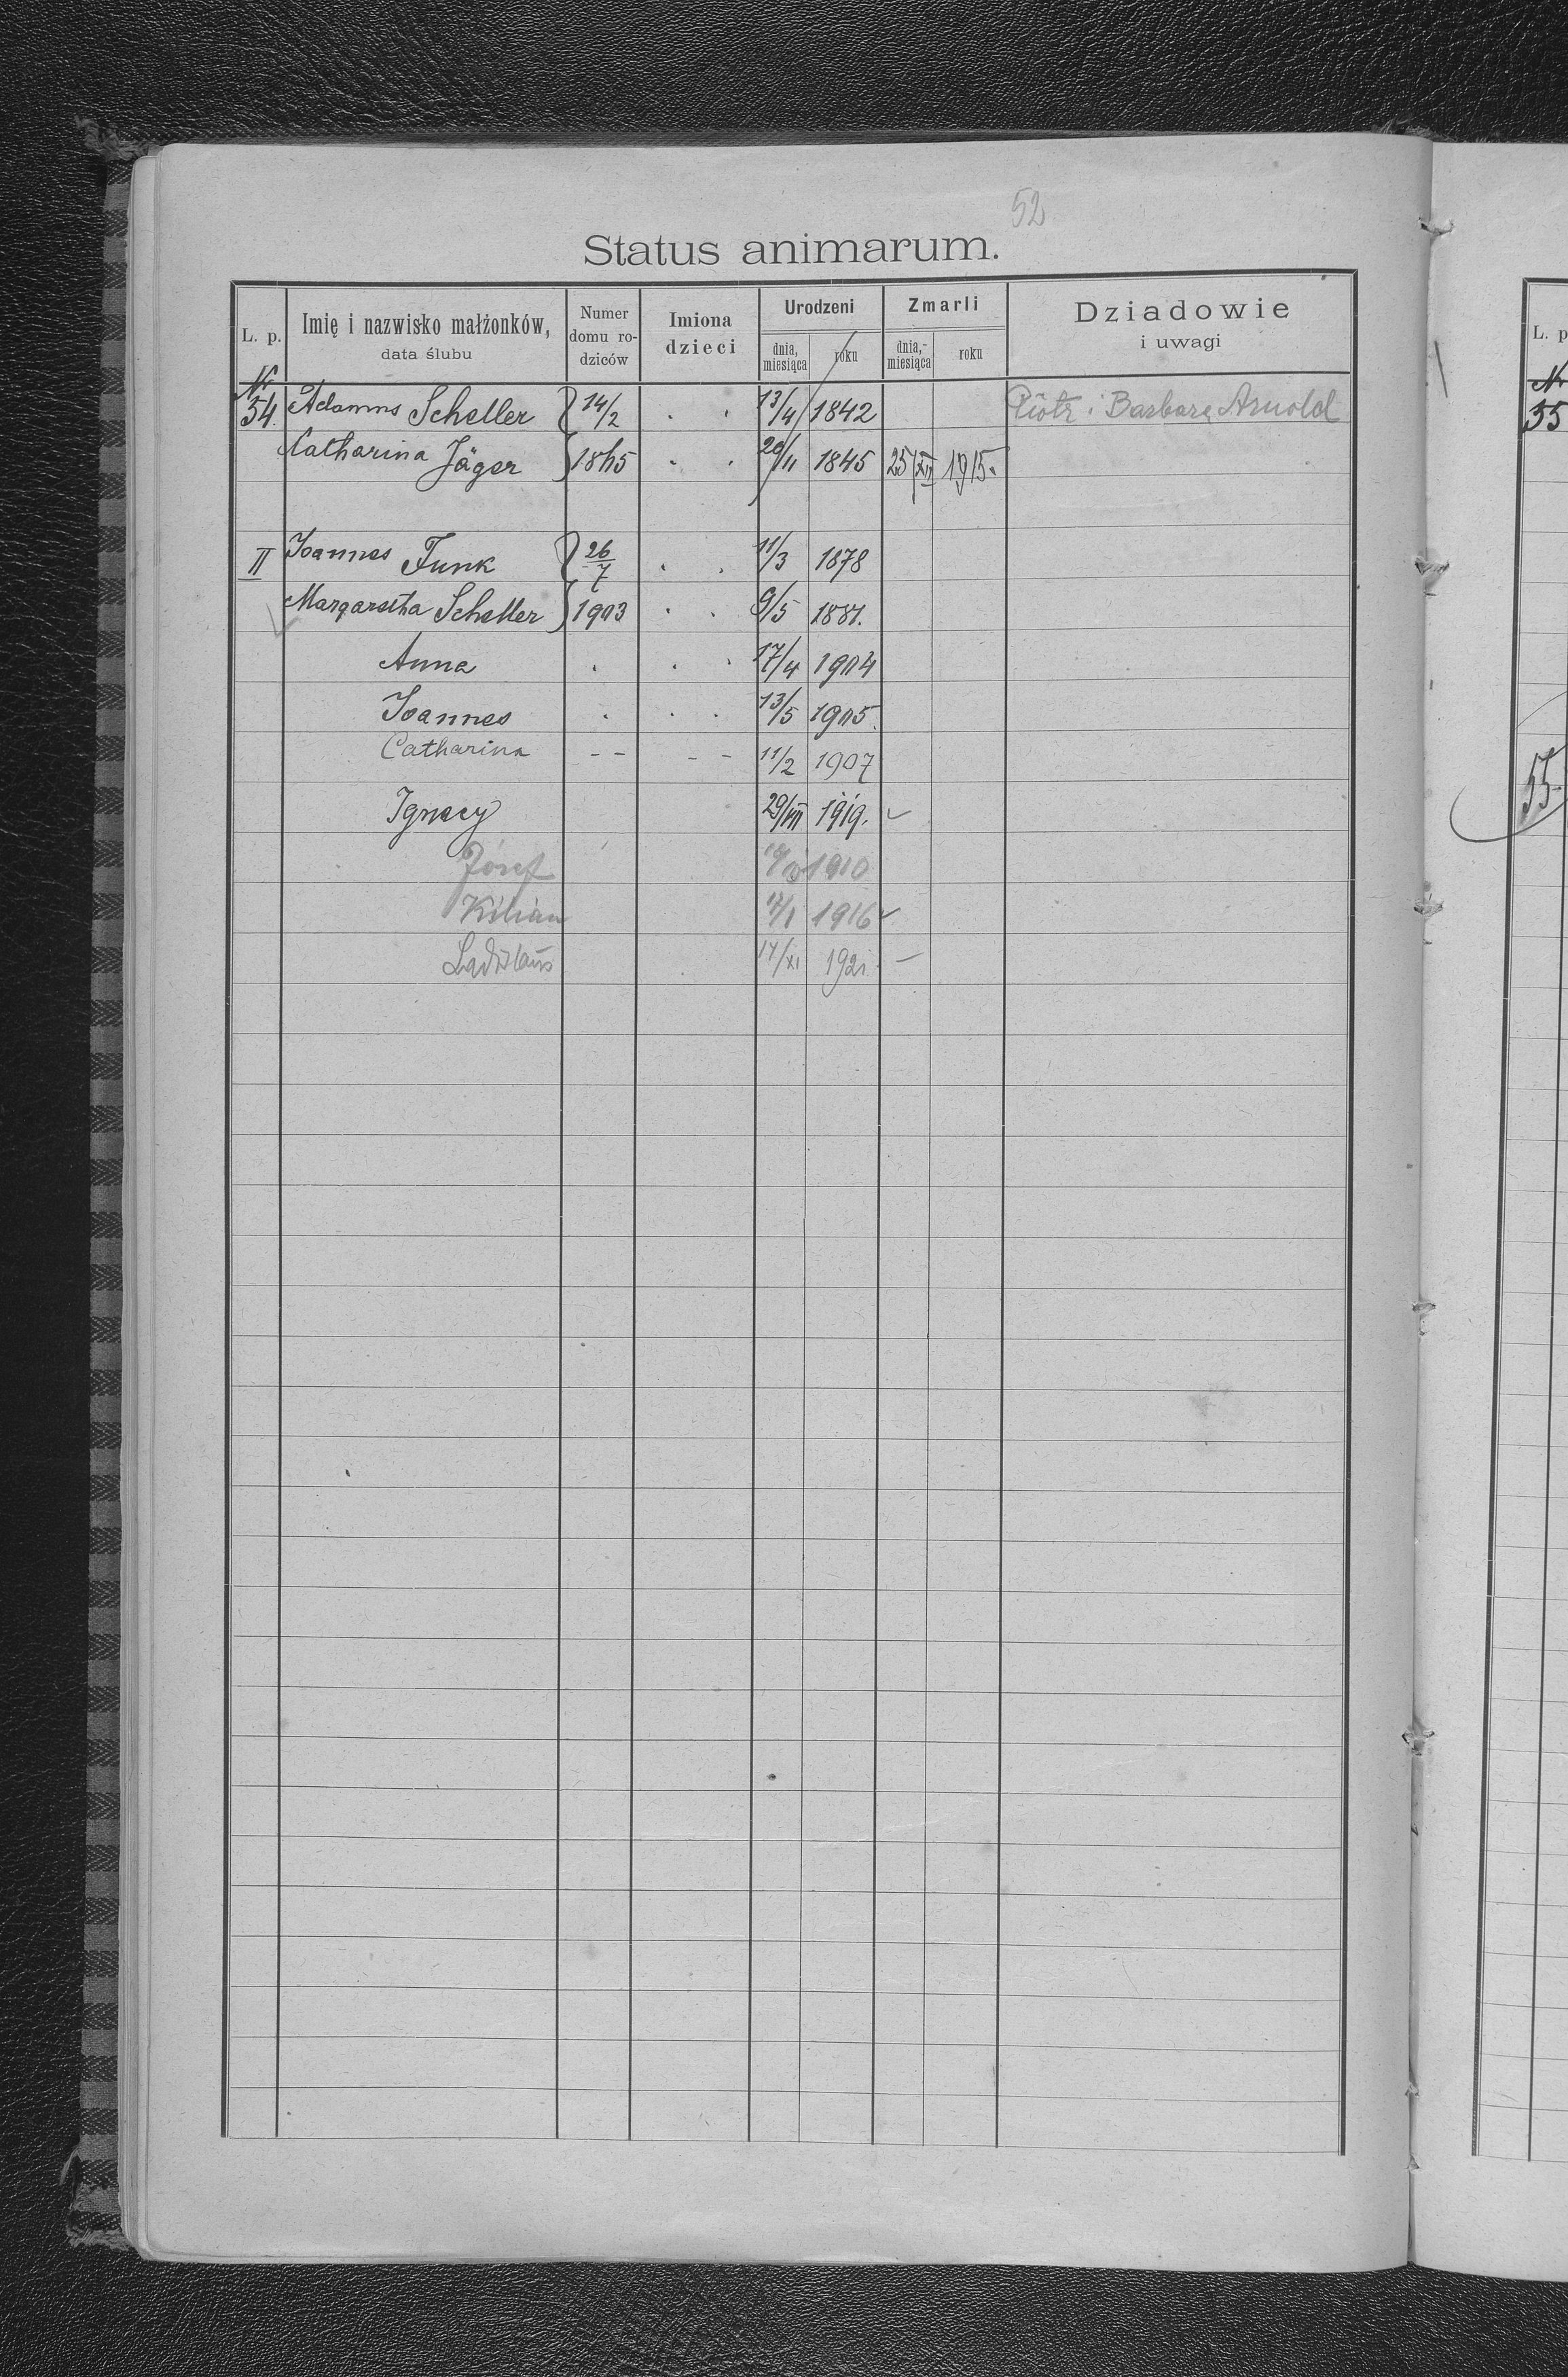 52
Status animarum.
L. p. Imię i nazwisko małżonków, data ślubu Numer domu rodziców Imiona dzieci Urodzeni dnia, miesiąca roku Zmarli dnia, miesiąca roku Dziadowie i uwagi
Nr 54. Adamus Scheller 14/2 13/4 1842 Piotr i Barbara Arnold
Catharina Jäger 1865 20/11 1845 25/XII 1915.
II Joannes Funk 26/7 11/3 1878
Margaretha Scheller 1903 9/5 1881.
Anna 17/4 1904
Joannes 13/5 1905.
Catharina -- -- 11/2 1907
Ignacy 29/VII 1919.
Józef 1910
Kilian 1916
Ladislaus 17/XI 1921
L. p
Nr
55
55